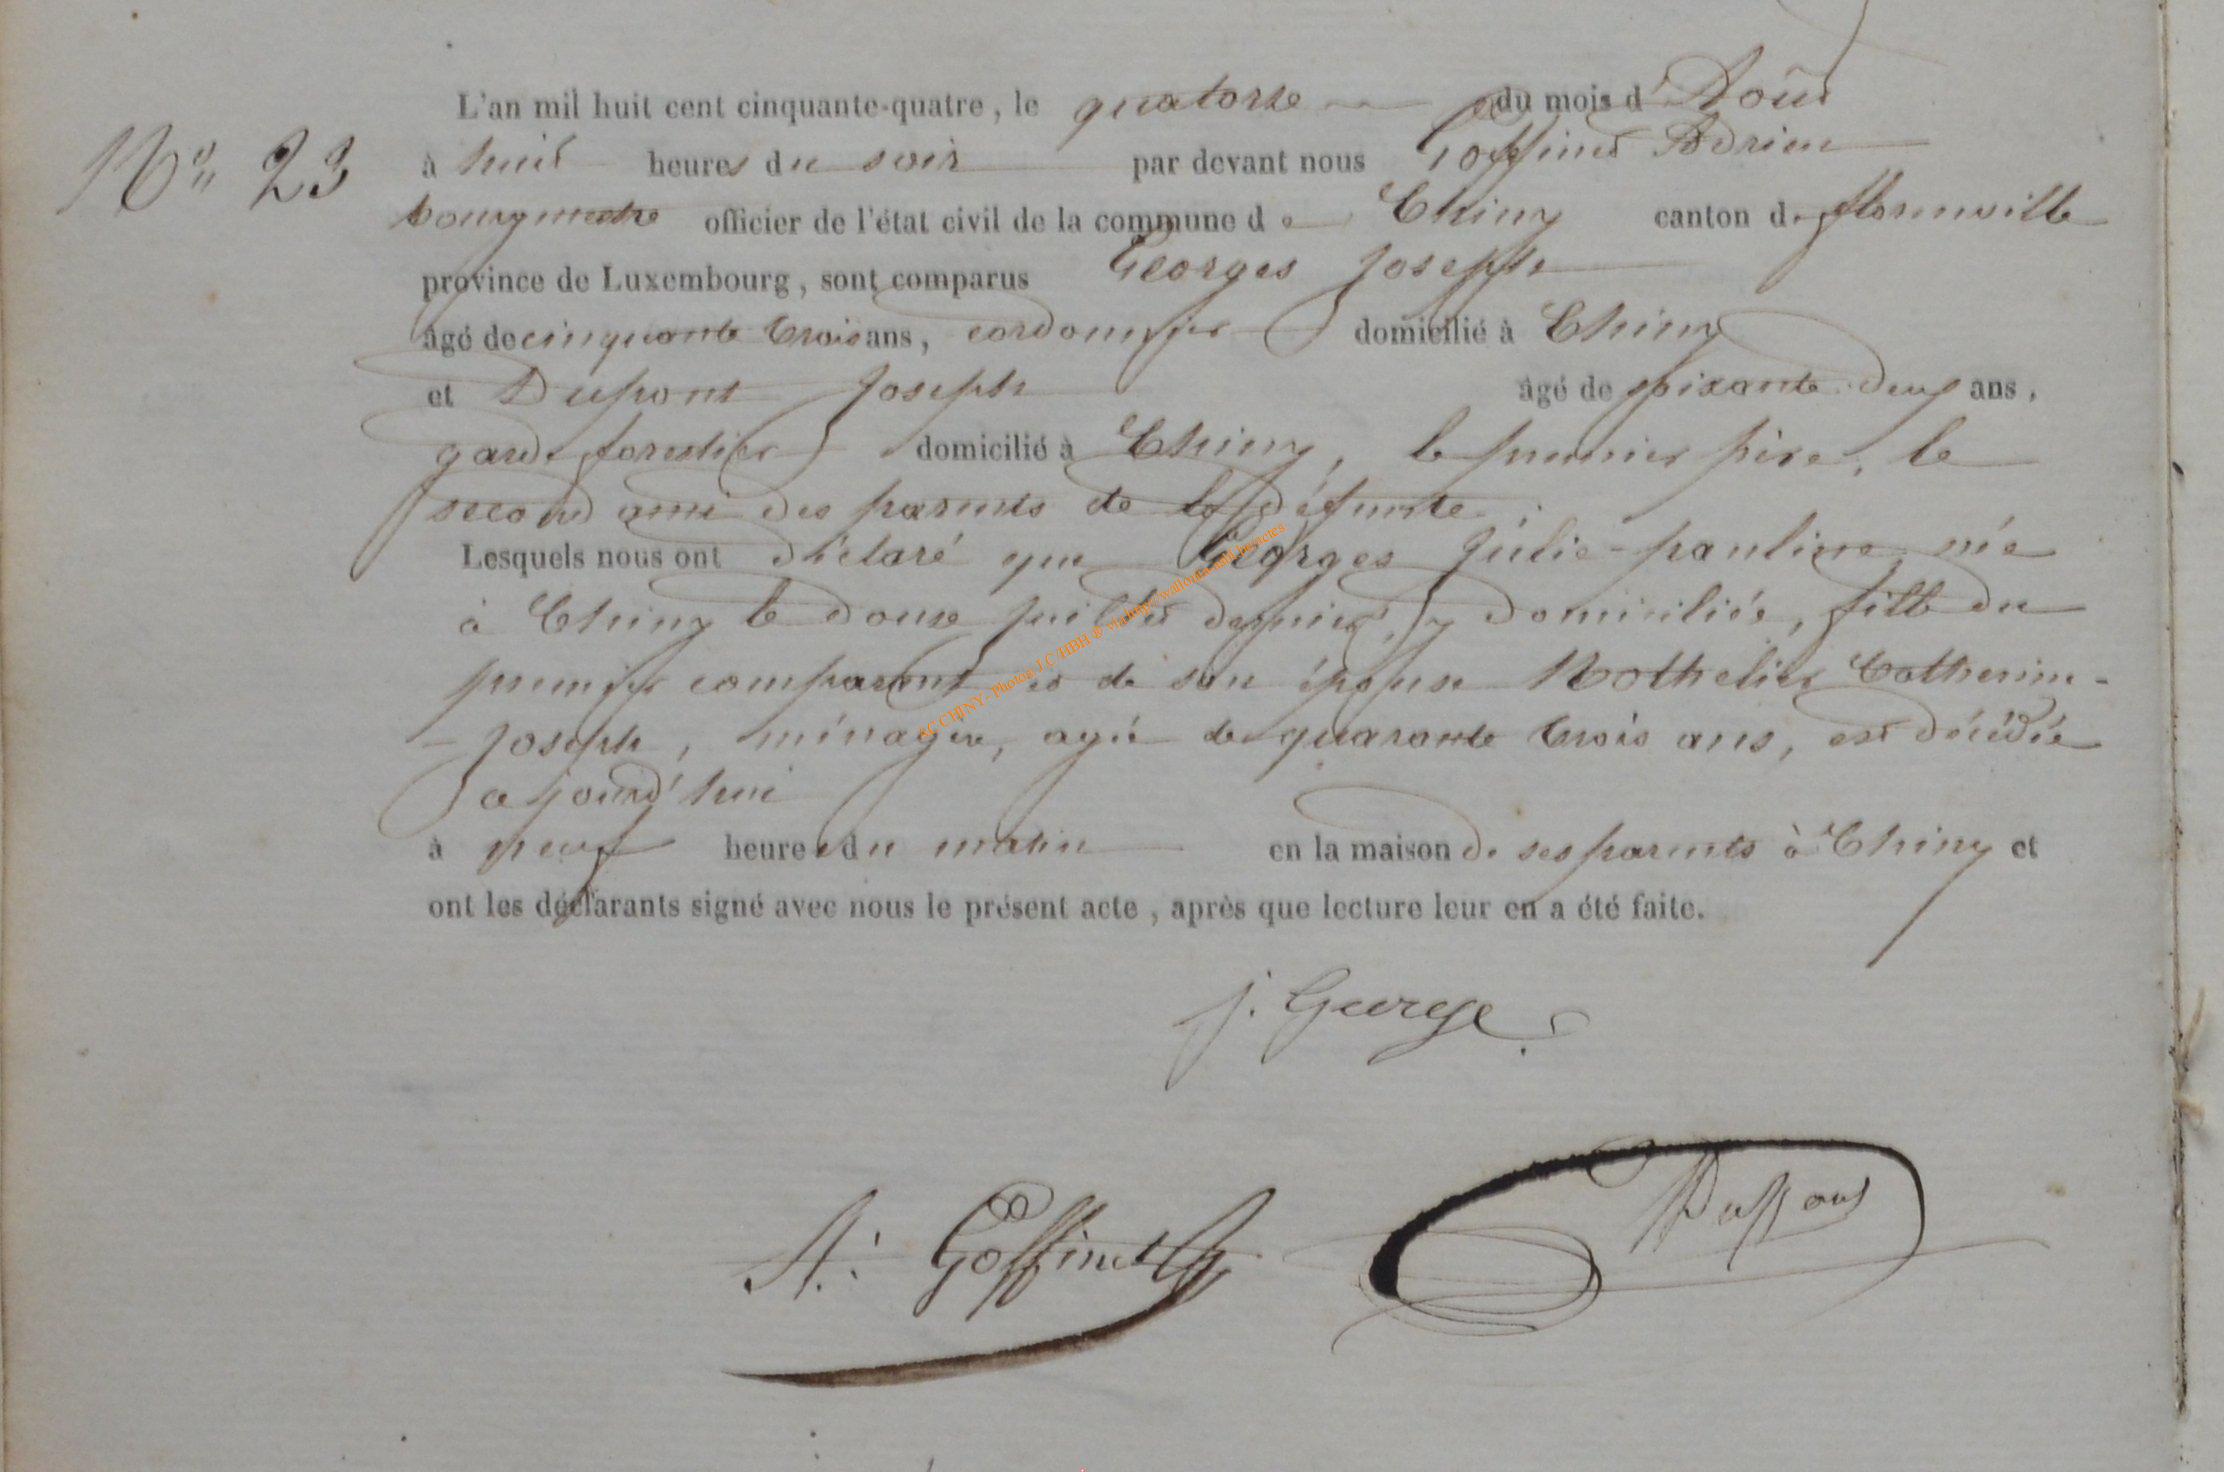 L'an mil huit cent cinquante-quatre, le quatorze du mois d'Août
N° 23
à huit heures du soir par devant nous Goffinet Adrien
bourgmestre officier de l'état civil de la commune de Chiny canton de florenville
province de Luxembourg, sont comparus Georges Joseph
âgé de cinquante trois ans, cordonnier domicilié à Chiny
et Dupont Joseph âgé de soixante-deux ans,
garde forestier domicilié à Chiny, le premier père, le
second ami des parents de la défunte.
Lesquels nous ont déclaré que Georges Julie-pauline née
à Chiny le douze juillet dernier, y domiciliée, fille du
premier comparant et de son épouse Rothelier Catherine-
-Joseph, ménagère, agée de quarante trois ans, est décédée
ajourd'hui
à neuf heures du matin en la maison de ses parents à Chiny et
ont les déclarants signé avec nous le présent acte, après que lecture leur en a été faite.
AC CHINY- Photos J.C/HBH
j. George
A: Goffinet
Dupont